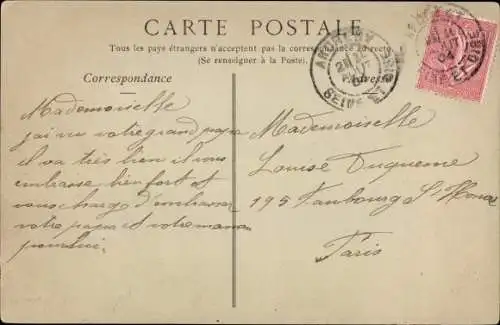 CARTE POSTALE
Tous les pays étrangers n'acceptent pas la correspondance au recto
(Se renseigner à la Poste).
Correspondance
Adresse
Mademoiselle
j'ai vu votre grand papa
il va très bien il vous
embrasse bien fort et
vous charge d'embrasser
votre papa et votre maman
pour lui
Mademoiselle
Louise Duquenne
195 Faubourg St Honoré
Paris
SEINE ET OISE